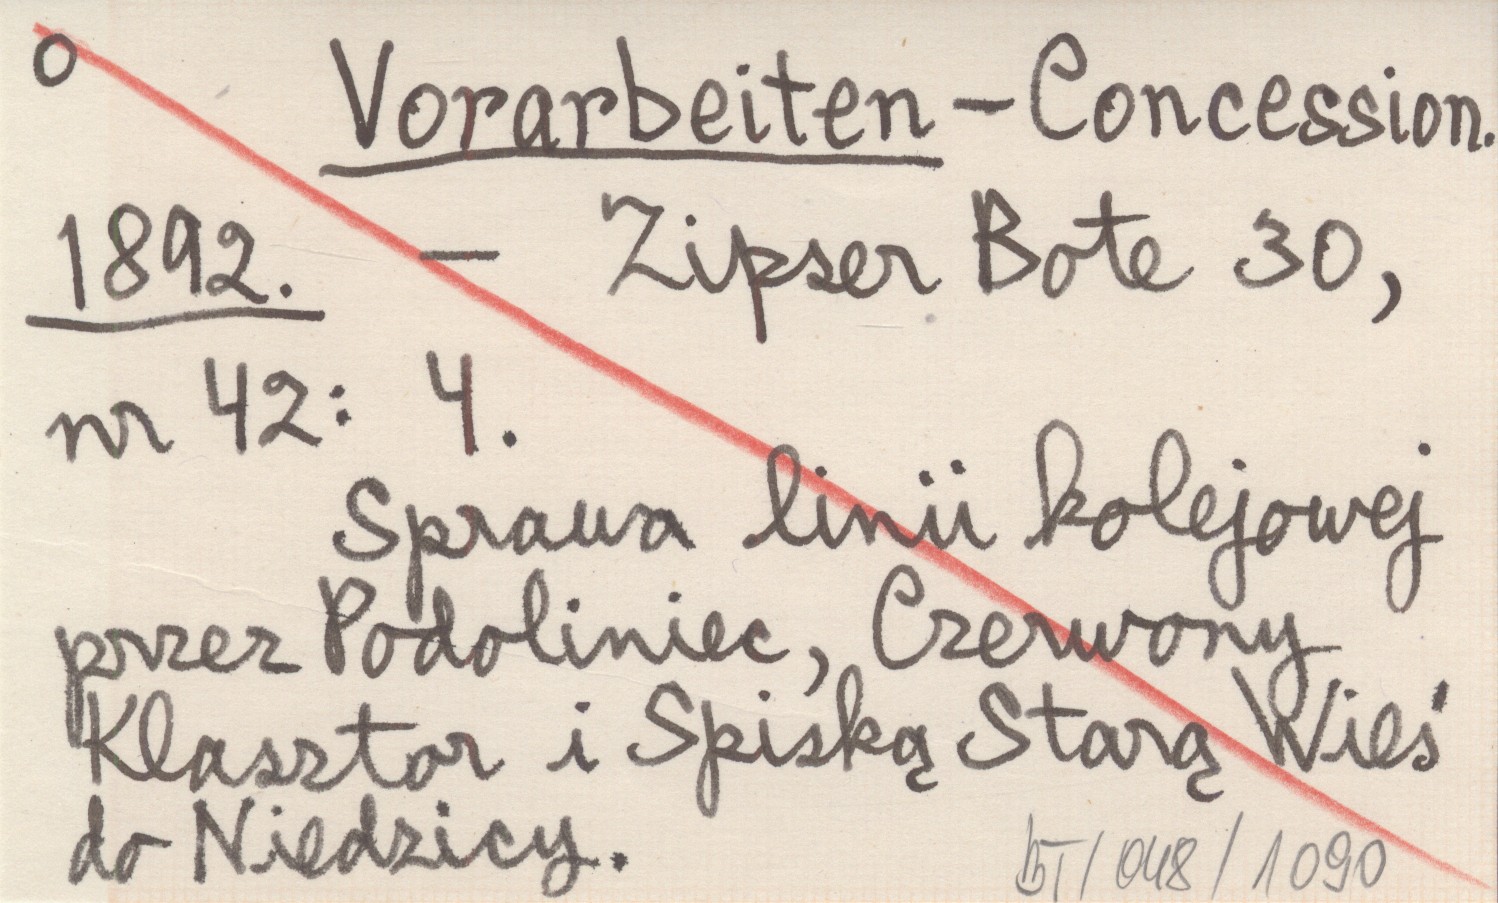 O
Vorarbeiten - Concession.
1892. — Zipser Bote 30,
nr 42: 4.
Sprawa linii kolejowej
przez Podoliniec, Czerwony
Klasztor i Spiską Starą Wieś
do Niedzicy.
BT/048/1090